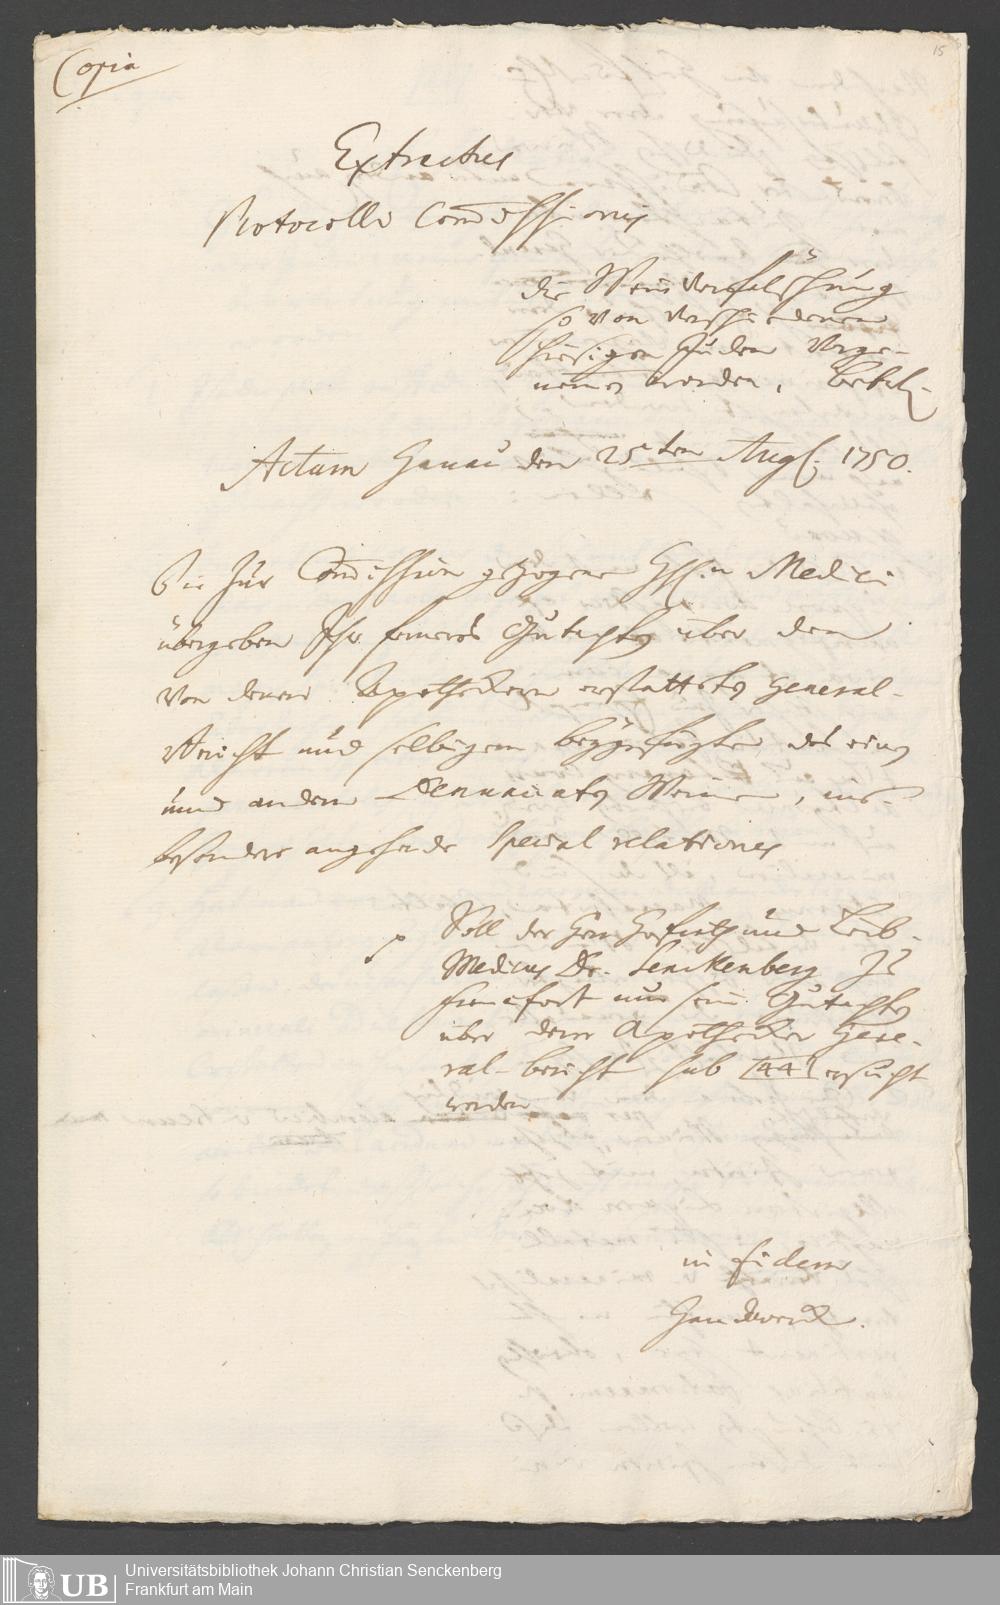 Copia
15
Extractus
Protocolli Commissionis
die Weinverfälschung
so von verschiedenen
hiesigen Juden vorge-
nommen worden, betrefl.
Actum Hanau den 25ten Aug. 1750.
Die zur Commission gezogene HHn. Medici
übergeben Ihr ferneres Gutachten über dem
von denen Apothekern erstatteten General-
Bericht und selbigem beygefügte, des einen
und andern Denunciaten Weine, ins-
besondere angehende Special relationes
Soll der Herr Hofrath und Leib-
Medicus Dr. Senckenberg zu
Franckfort um sein Gutachten
über dem Apothecker Gene-
ral-bericht sub [44] ersucht
werden
in fidem
Handwerck.
Universitätsbibliothek Johann Christian Senckenberg
Frankfurt am Main
UB